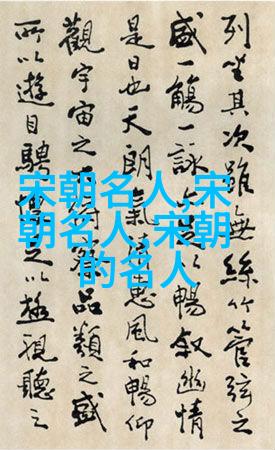 列坐其次雖無絲竹管弦之
盛一觴一詠以暢敘幽情
是日也天朗氣惠風和暢仰
觀宇宙之察品類之盛
所以遊目騁以極視聽之
宋朝名人,宋
朝名人,宋朝
的名人